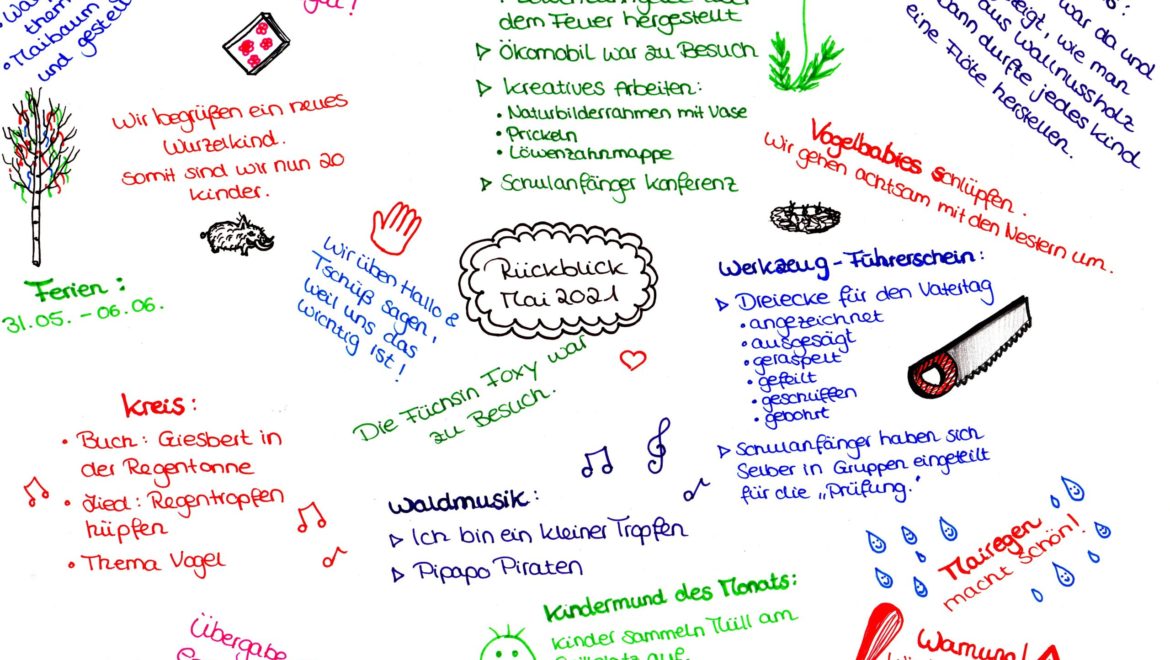 them
• Maibaum
und gestell
dem Feuer hergestellt
▷ Ökomobil war zu Besuch
▷ kreatives Arbeiten:
• Naturbilderrahmen mit Vase
• Prickeln
• Löwenzahnmappe
▷ Schulanfänger Konferenz
war da und
eigt, wie man
aus Wallnussholz
dann durfte jedes Kind
eine Flöte herstellen.
Wir begrüßen ein neues
Wurzelkind.
Somit sind wir nun 20
Kinder.
Vogelbabies schlüpfen.
Wir gehen achtsam mit den Nestern um.
Ferien:
31.05. – 06.06.
Wir üben Hallo &
Tschüß sagen,
weil uns das
wichtig ist!
Rückblick
Mai 2021
Die Füchsin Foxy war
zu Besuch.
Werkzeug-Führerschein:
▷ Dreiecke für den Vatertag
• angezeichnet
• ausgesägt
• geraspelt
• gefeilt
• geschliffen
• gebohrt
▷ Schulanfänger haben sich
Selber in Gruppen eingeteilt
für die „Prüfung."
Kreis:
• Buch: Giesbert in
der Regentonne
• Lied: Regentropfen
hüpfen
• Thema Vogel
Waldmusik:
▷ Ich bin ein kleiner Tropfen
▷ Pipapo Piraten
Mairegen
macht schön!
Übergabe
Kindermund des Monats:
Kinder sammeln Müll am
auf.
Warnung!